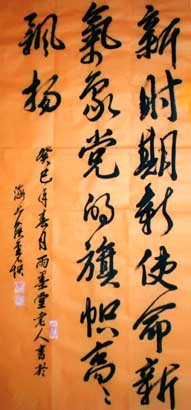 新时期新使命新
氣象党的旗帜高高
飘扬
癸巳年春月雨墨堂老人书於